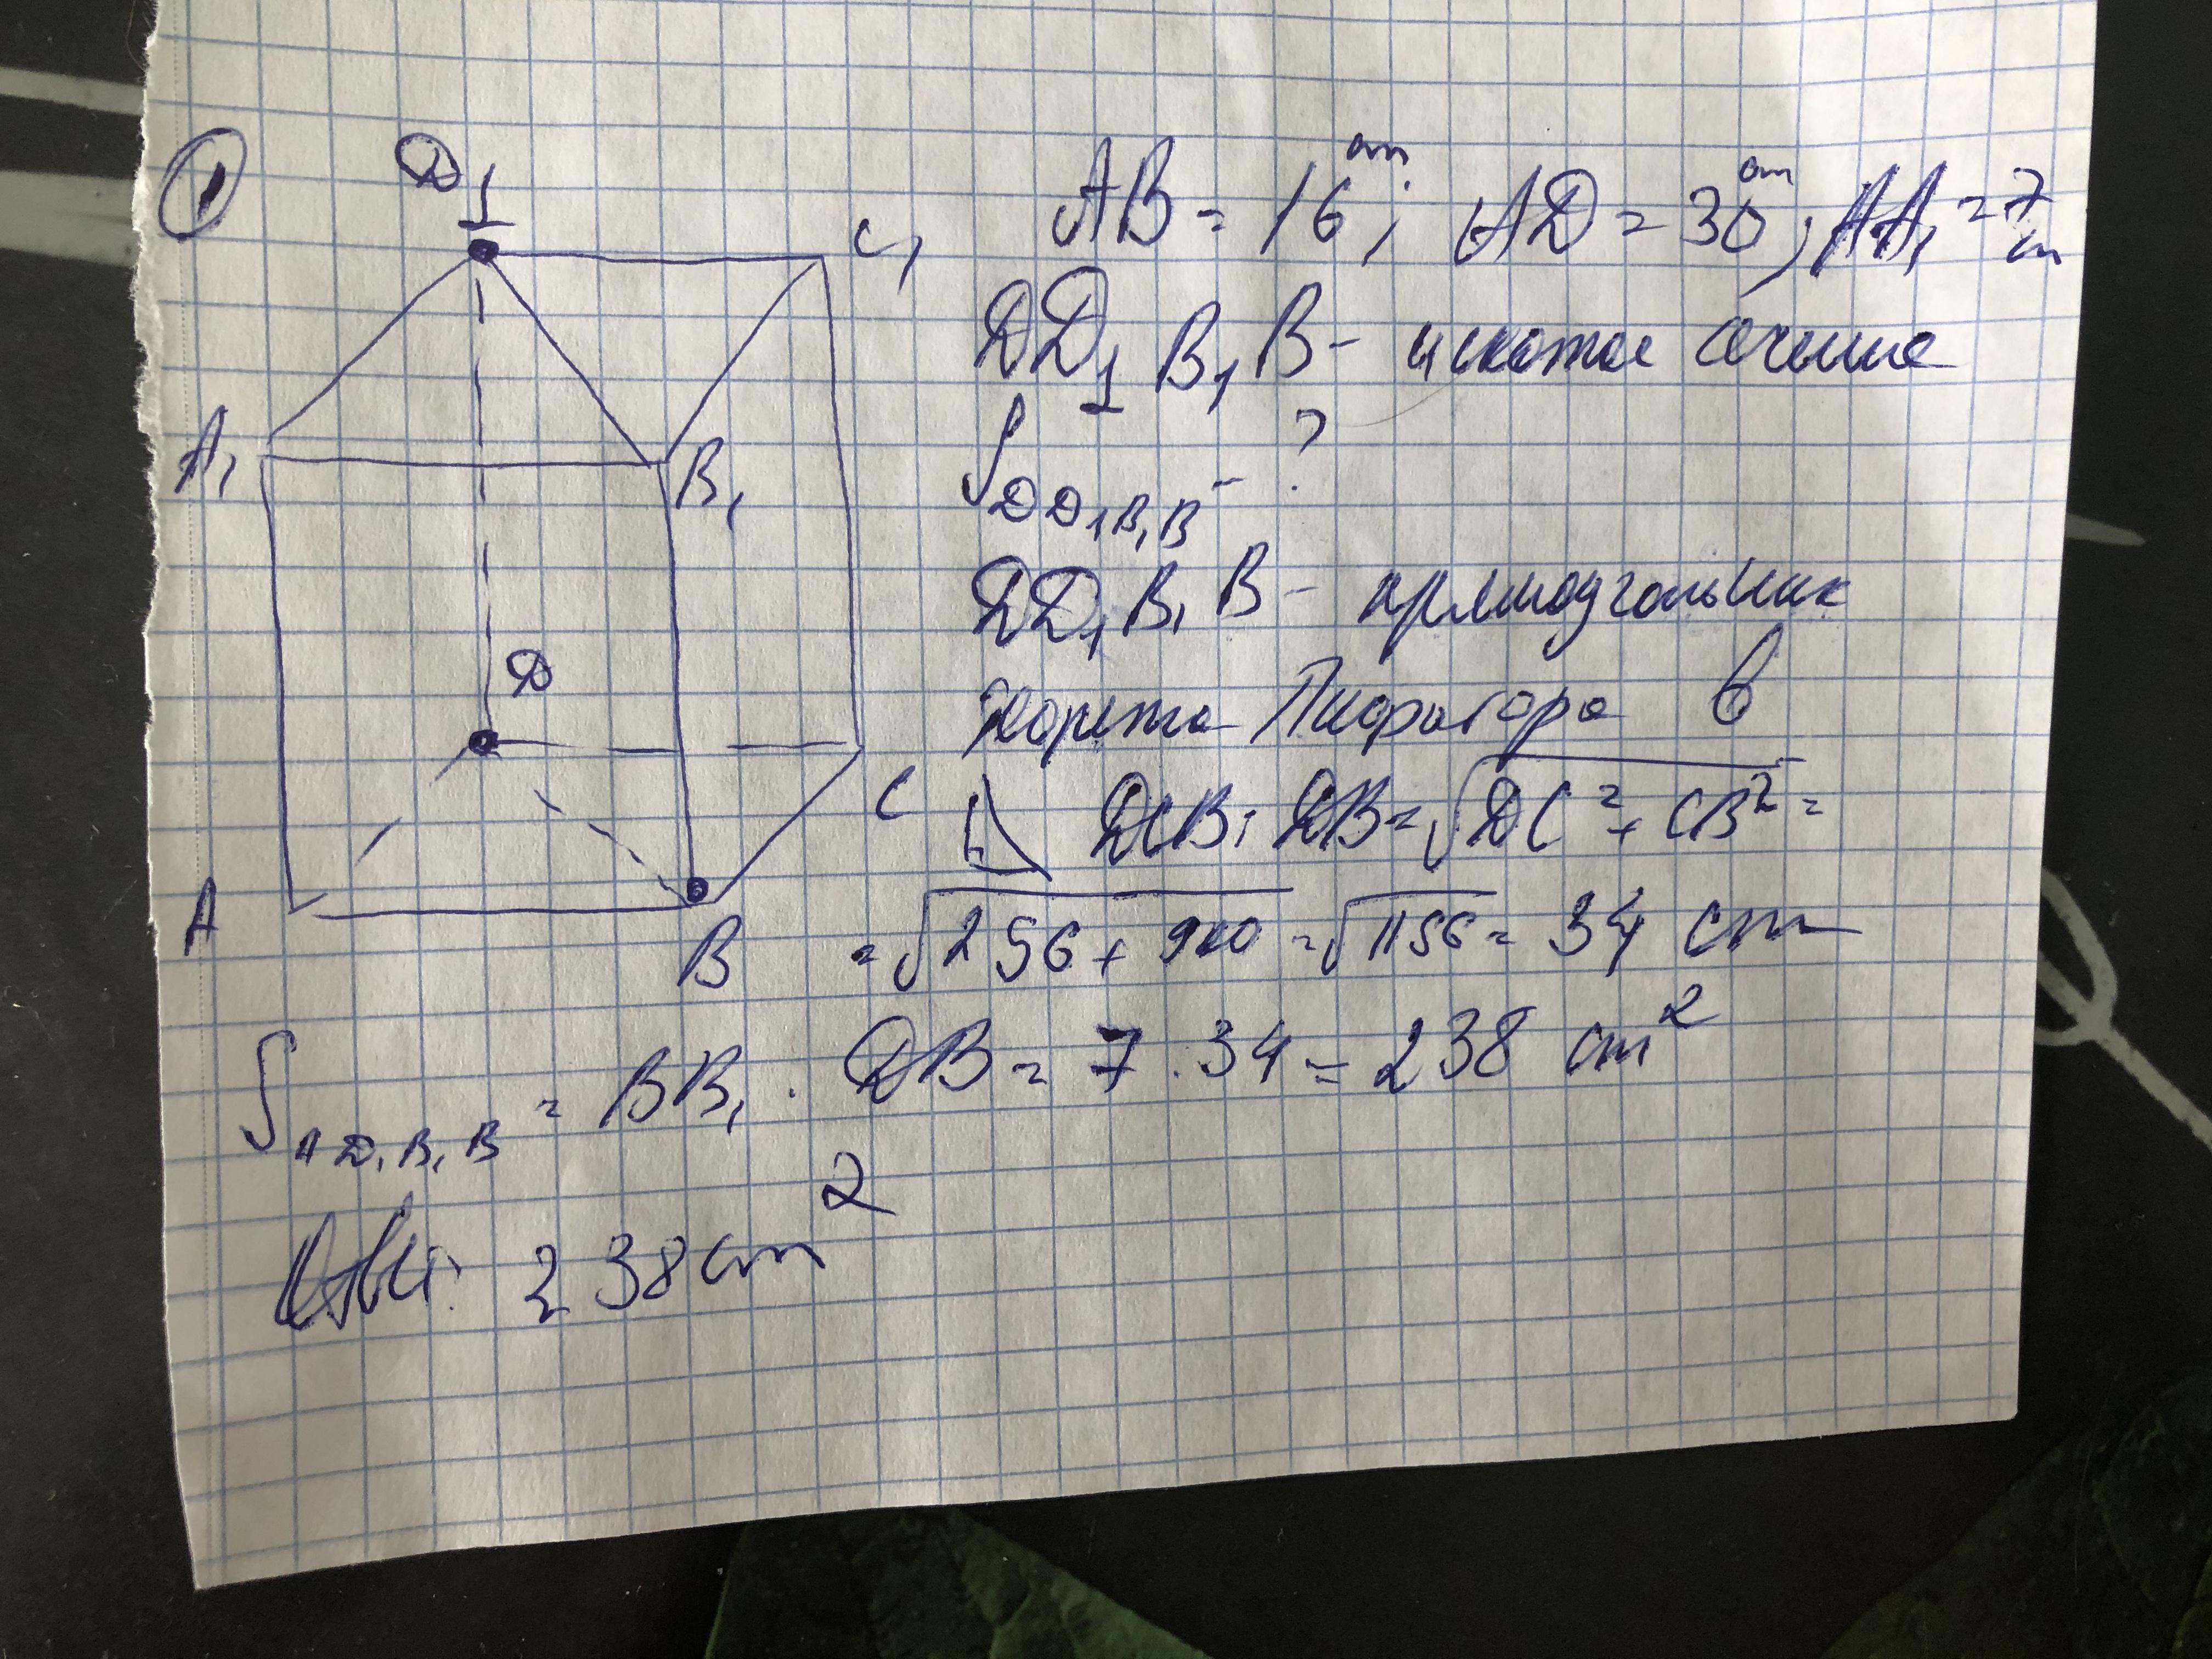 1
D₁
C₁
A₁
B₁
D
C
A
B
AB = 16 cm; AD = 30 cm; AA₁ = 7 cm
DD₁B₁B - искомое сечение
S DD₁B₁B - ?
DD₁B₁B - прямоугольник
теорема Пифагора в
DCB: DB = √DC² + CB² =
= √256 + 900 = √1156 = 34 cm
S DD₁B₁B = BB₁ · DB = 7 · 34 = 238 cm²
Ответ: 238 cm²